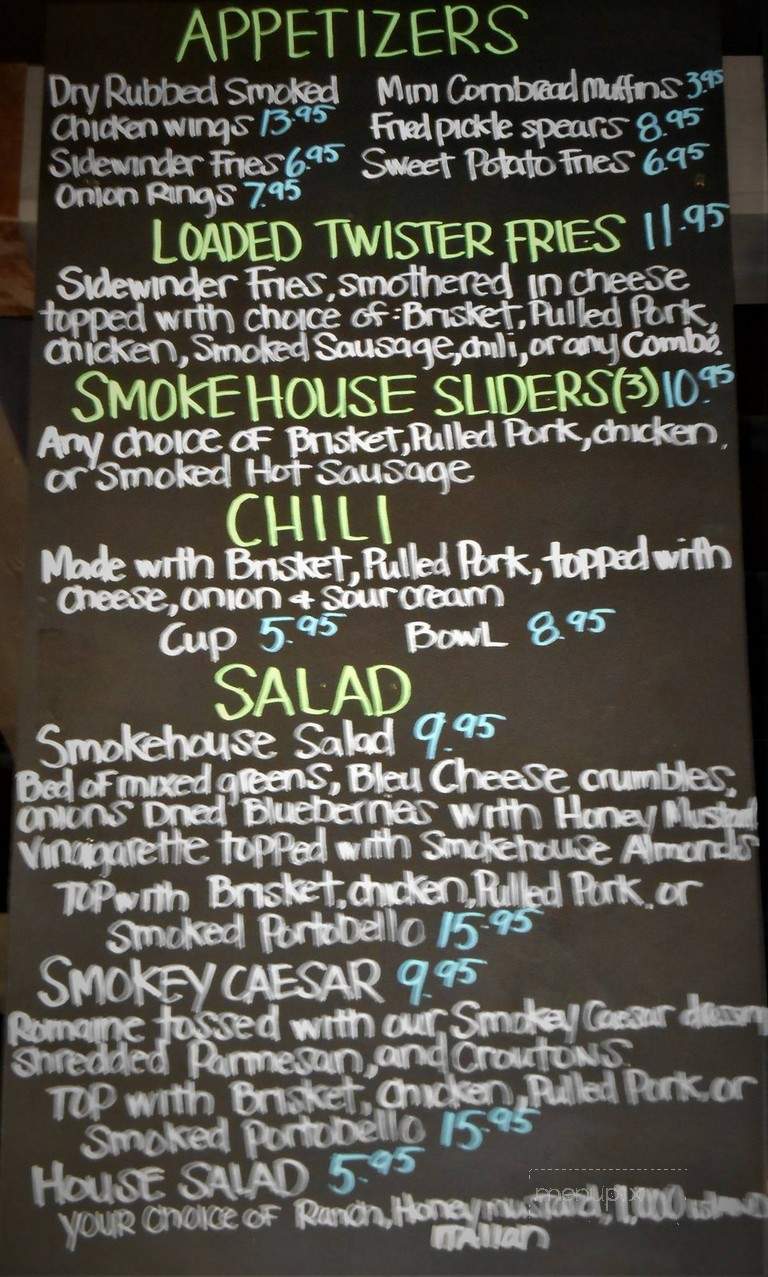 APPETIZERS
Dry Rubbed Smoked Mini Cornbread Muffins 3.95
Chicken wings 13.95 Fried pickle spears 8.95
Sidewinder Fries 6.95 Sweet Potato Fries 6.95
Onion Rings 7.95
LOADED TWISTER FRIES 11.95
Sidewinder Fries, smothered in cheese
topped with choice of: Brisket, Pulled Pork,
chicken, Smoked Sausage, chili, or any Combo.
SMOKEHOUSE SLIDERS (3) 10.95
Any choice of Brisket, Pulled Pork, chicken,
or Smoked Hot Sausage
CHILI
Made with Brisket, Pulled Pork, topped with
cheese, onion & sour cream
Cup 5.95 Bowl 8.95
SALAD
Smokehouse Salad 9.95
Bed of mixed greens, Bleu Cheese crumbles,
onions Dried Blueberries with Honey Mustard
Vinaigarette topped with Smokehouse Almonds
TOP with Brisket, chicken, Pulled Pork, or
Smoked Portobello 15.95
SMOKEY CAESAR 9.95
Romaine tossed with our Smokey Caesar
shredded Parmesan, and Croutons.
TOP with Brisket, Chicken, Pulled Pork, or
Smoked Portobello 15.95
HOUSE SALAD 5.95
menupix
YOUR CHOICE OF Ranch, Honey mustard, 1,000 island
ITALIAN